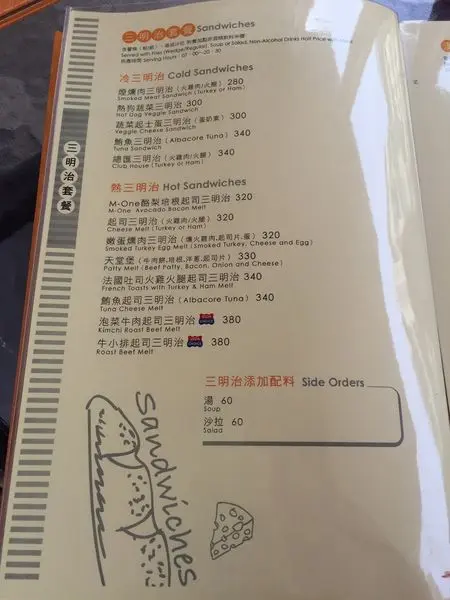 三明治套餐 Sandwiches
Served with Fries (Wedge/Regular), Soup or Salad, Non-Alcohol Drinks Half Price
供應時間 Serving Hours: 07:00~20:30
冷三明治 Cold Sandwiches
煙燻肉三明治 (火雞肉/火腿) 280
Smoked Meat Sandwich (Turkey or Ham)
熱狗蔬菜三明治 300
Hot Dog Veggie Sandwich
蔬菜起士蛋三明治 (蛋奶素) 300
Veggie Cheese Sandwich
鮪魚三明治 (Albacore Tuna) 340
Tuna Sandwich
總匯三明治 (火雞肉/火腿) 340
Club House (Turkey or Ham)
熱三明治 Hot Sandwiches
M-One酪梨培根起司三明治 320
M-One Avocado Bacon Melt
起司三明治 (火雞肉/火腿) 320
Cheese Melt (Turkey or Ham)
嫩蛋燻肉三明治 (燻火雞肉,起司片,蛋) 320
Smoked Turkey Egg Melt (Smoked Turkey, Cheese and Egg)
天堂堡 (牛肉餅,培根,洋蔥,起司片) 330
Patty Melt (Beef Patty, Bacon, Onion and Cheese)
法國吐司火雞火腿起司三明治 340
French Toasts with Turkey & Ham Melt
鮪魚起司三明治 (Albacore Tuna) 340
Tuna Cheese Melt
泡菜牛肉起司三明治 380
Kimchi Roast Beef Melt
牛小排起司三明治 380
Roast Beef Melt
三明治添加配料 Side Orders
湯 60
Soup
沙拉 60
Salad
三明治套餐
Sandwiches